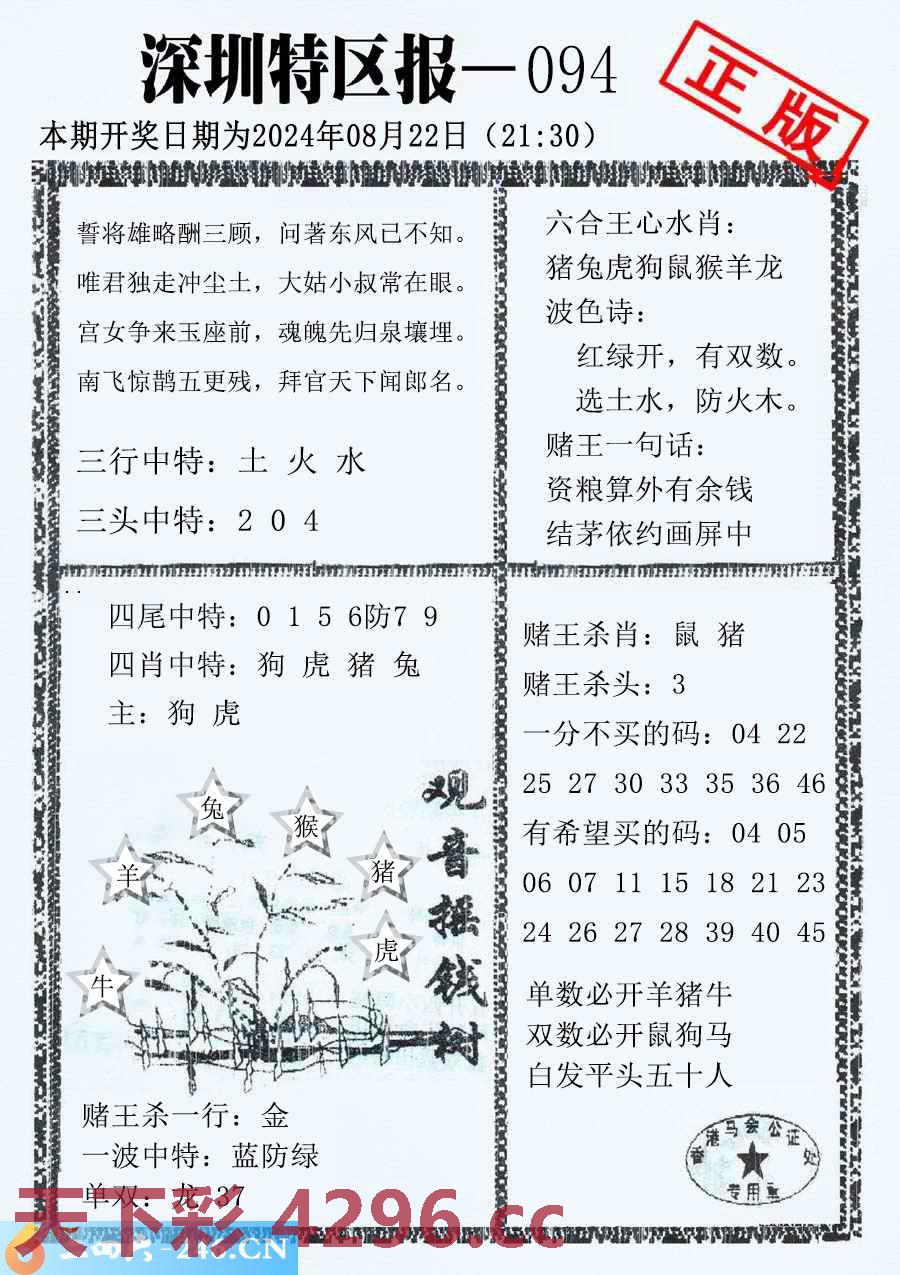 深圳特区报—094
正版
本期开奖日期为2024年08月22日（21:30）
誓将雄略酬三顾，问著东风已不知。
唯君独走冲尘土，大姑小叔常在眼。
宫女争来玉座前，魂魄先归泉壤埋。
南飞惊鹊五更残，拜官天下闻郎名。
三行中特：土 火 水
三头中特：2 0 4
六合王心水肖：
猪兔虎狗鼠猴羊龙
波色诗：
红绿开，有双数。
选土水，防火木。
赌王一句话：
资粮算外有余钱
结茅依约画屏中
四尾中特：0 1 5 6防7 9
四肖中特：狗 虎 猪 兔
主：狗 虎
兔
猴
羊
猪
虎
牛
观音摇钱树
赌王杀一行：金
一波中特：蓝防绿
单双：龙 37
赌王杀肖：鼠 猪
赌王杀头：3
一分不买的码：04 22
25 27 30 33 35 36 46
有希望买的码：04 05
06 07 11 15 18 21 23
24 26 27 28 39 40 45
单数必开羊猪牛
双数必开鼠狗马
白发平头五十人
香港马会公证处
专用章
天下彩 4296.cc
246.CN